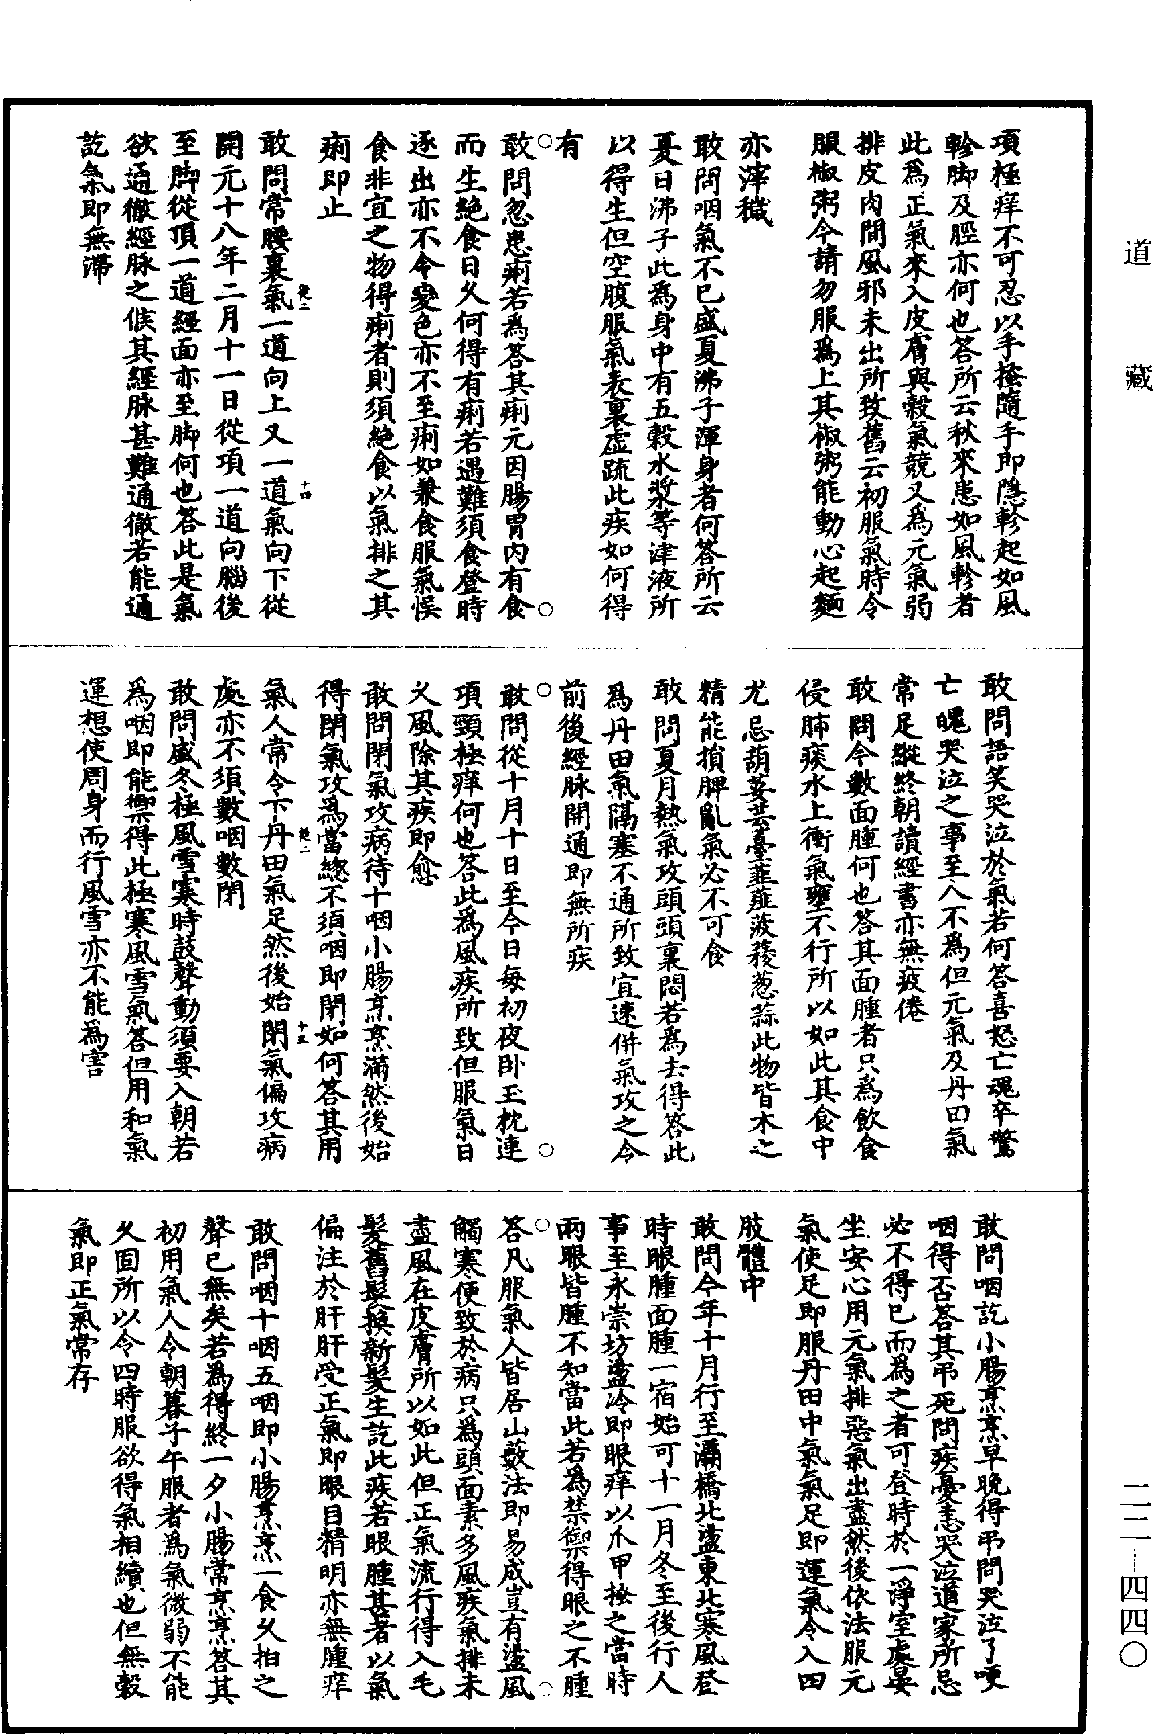 道藏
項極痒不可忍以手搔隨手即隱軫起如風
軫脚及脛亦何也答所云秋來患如風軫者
此為正氣來入皮膚與穀氣競又為元氣弱
排皮肉間風邪未出所致舊云初服氣時令
服椒粥今請勿服為上其椒粥能動心起麵
亦滓穢
敢問咽氣不已盛夏沸子渾身者何答所云
夏日沸子此為身中有五穀水漿等津液所
以得生但空腹服氣表裏虛疏此疾如何得
有
敢問忽患痢若為答其痢元因腸胃內有食
而生絕食日久何得有痢若遇難須食登時
逐出亦不令變色亦不至痢如兼食服氣悮
食非宜之物得痢者則須絕食以氣排之其
痢即止
敢問常腰裏氣一道向上又一道氣向下從
開元十八年二月十一日從項一道向腦後
至脚從頂一道經面亦至脚何也答此是氣
欲通徹經脉之候其經脉甚難通徹若能通
訖氣即無滯
敢問語笑哭泣於氣若何答喜怒亡魂卒驚
亡魄哭泣之事至人不為但元氣及丹田氣
常足縱終朝讀經書亦無疲倦
敢問今數面腫何也答其面腫者只為飲食
侵肺痰水上衝氣壅不行所以如此其食中
尤忌葫荽芸薹韮薤菠薐葱蒜此物皆木之
精能損脾亂氣必不可食
敢問夏月熱氣攻頭頭裏悶若為去得答此
為丹田氣隔塞不通所致宜速併氣攻之令
前後經脉開通即無所疾
敢問從十月十日至今日每初夜卧玉枕連
項頸極痒何也答此為風疾所致但服氣日
久風除其疾即愈
敢問閉氣攻病待十咽小腸烹烹滿然後始
得閉氣攻為當總不須咽即閉如何答其用
氣人常令下丹田氣足然後始閉氣偏攻病
處亦不須數咽數閉
敢問盛冬極風雪寒時鼓聲動須要入朝若
為咽即能禦得此極寒風雪氣答但用和氣
運想使周身而行風雪亦不能為害
敢問咽訖小腸烹烹早晚得弔問哭泣了哽
咽得否答其弔死問疾憂恚哭泣道家所忌
必不得已而為之者可登時於一淨室處晏
坐安心用元氣排惡氣出盡然後依法服元
氣使足即服丹田中氣氣足即運氣令入四
肢體中
敢問今年十月行至灞橋北盪東北寒風登
時眼腫面腫一宿始可十一月冬至後行人
事至永崇坊盪冷即眼痒以爪甲搔之當時
兩眼皆腫不知當此若為禁禦得眼之不腫
答凡服氣人皆居山藪法即易成豈有盪風
觸寒便致於病只為頭面素多風疾氣排未
盡風在皮膚所以如此但正氣流行得入毛
髮舊髮換新髮生訖此疾若眼腫甚者以氣
偏注於肝肝受正氣即眼目精明亦無腫痒
敢問咽十咽五咽即小腸烹烹一食久拍之
聲已無矣若為得終一夕小腸常烹烹答其
初用氣人令朝暮子午服者為氣微弱不能
久固所以令四時服欲得氣相續也但無穀
氣即正氣常存
二二—四四〇